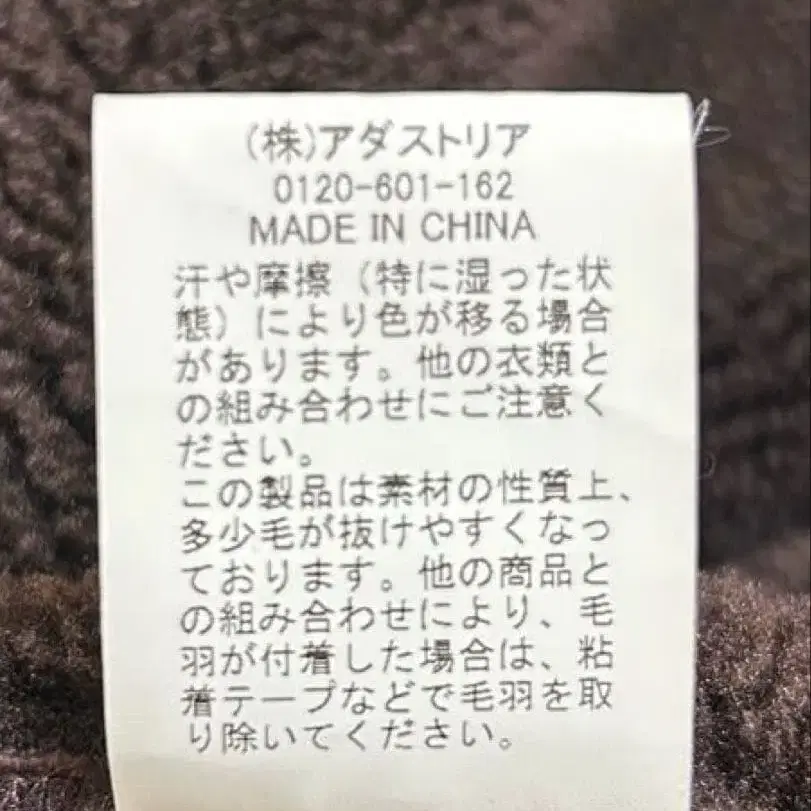 (株)アダストリア
0120-601-162
MADE IN CHINA
汗や摩擦（特に湿った状
態）により色が移る場合
があります。他の衣類と
の組み合わせにご注意く
ださい。
この製品は素材の性質上、
多少毛が抜けやすくなっ
ております。他の商品と
の組み合わせにより、毛
羽が付着した場合は、粘
着テープなどで毛羽を取
り除いてください。